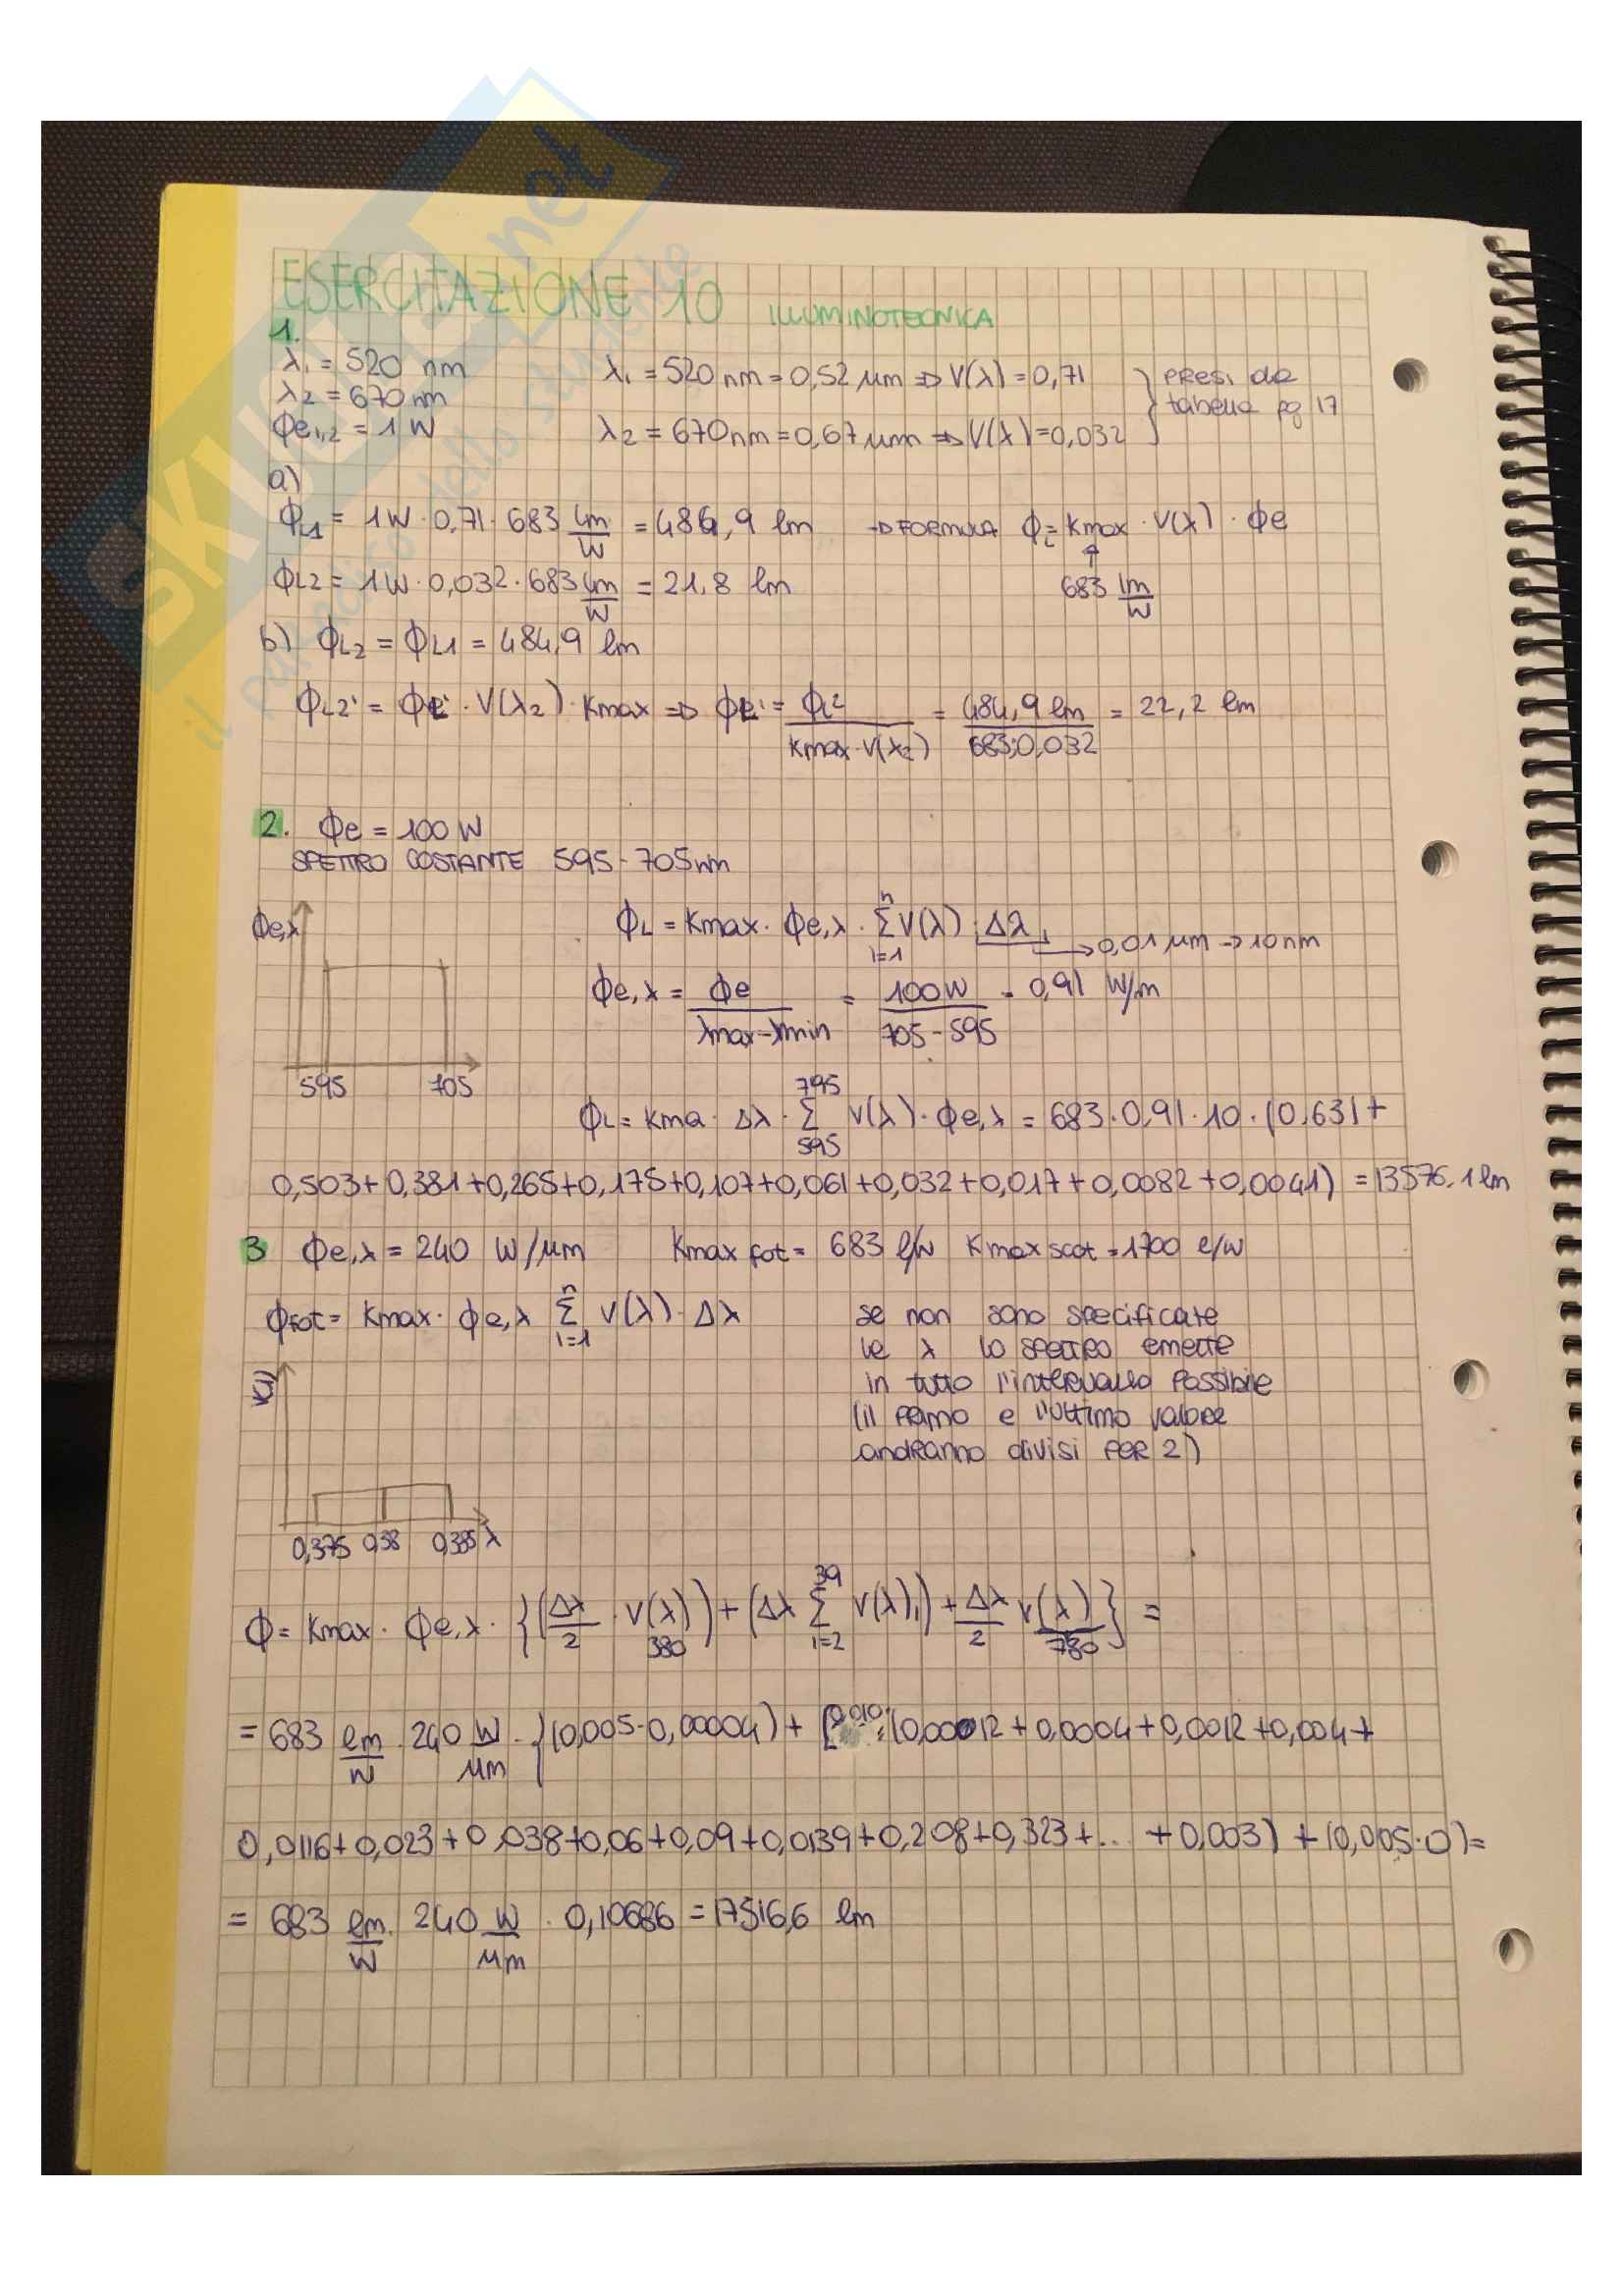 SKUOLA.net
il paradiso dello studente
ESERCITAZIONE 10 ILLUMINOTECNICA
1.
λ1 = 520 nm
λ2 = 670 nm
Φe1,2 = 1 W
λ1 = 520 nm = 0,52 μm ⇒ V(λ) = 0,71
λ2 = 670 nm = 0,67 μm ⇒ V(λ) = 0,032
} PRESI da tabella pg 17
a)
ΦL1 = 1W · 0,71 · 683 lm/W = 484,9 lm → FORMULA ΦL = Kmax · V(λ) · Φe
ΦL2 = 1W · 0,032 · 683 lm/W = 21,8 lm
683 lm/W
b) ΦL2 = ΦL1 = 484,9 lm
ΦL2' = Φe' · V(λ2) · Kmax ⇒ Φe' = ΦL2 / Kmax · V(λ2) = 484,9 lm / 683·0,032 = 22,2 lm
2. Φe = 100 W
SPETTRO COSTANTE 595 - 705 nm
Φe,λ
595 705
ΦL = Kmax · Φe,λ · Σ i=1 n V(λ) · Δλ → 0,01 μm → 10 nm
Φe,λ = Φe / λmax - λmin = 100W / 705 - 595 = 0,91 W/m
ΦL = Kma · Δλ · Σ 595 795 V(λ) · Φe,λ = 683 · 0,91 · 10 · (0,631 +
0,503 + 0,381 + 0,265 + 0,175 + 0,107 + 0,061 + 0,032 + 0,017 + 0,0082 + 0,0041) = 13576,1 lm
3 Φe,λ = 240 W/μm Kmax fot = 683 l/W Kmax scot = 1700 e/W
Φfot = Kmax · Φe,λ Σ i=1 n V(λ) · Δλ
se non sono specificate
le λ lo spettro emette
in tutto l'intervallo possibile
(il primo e l'ultimo valore
andranno divisi per 2)
V(λ)
0,375 0,38 0,385 λ
Φ = Kmax · Φe,λ · {(Δλ/2 · V(λ)380) + (Δλ Σ i=2 39 V(λ)i) + Δλ/2 V(λ)780} =
= 683 lm/W · 240 W/μm · {(0,005 · 0,00004) + [0,010 · (0,00012 + 0,0004 + 0,0012 + 0,004 +
0,0116 + 0,023 + 0,038 + 0,06 + 0,09 + 0,0139 + 0,208 + 0,323 + ... + 0,003) + (0,005 · 0) =
= 683 lm/W · 240 W/μm · 0,10686 = 17516,6 lm